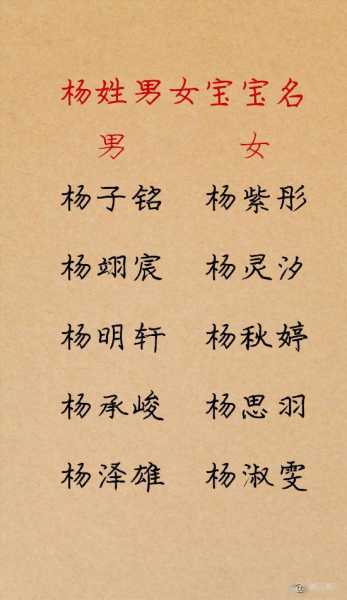 杨姓男女宝宝名
男 女
杨子铭 杨紫彤
杨翊宸 杨灵汐
杨明轩 杨秋婷
杨承峻 杨思羽
杨泽雄 杨淑雯